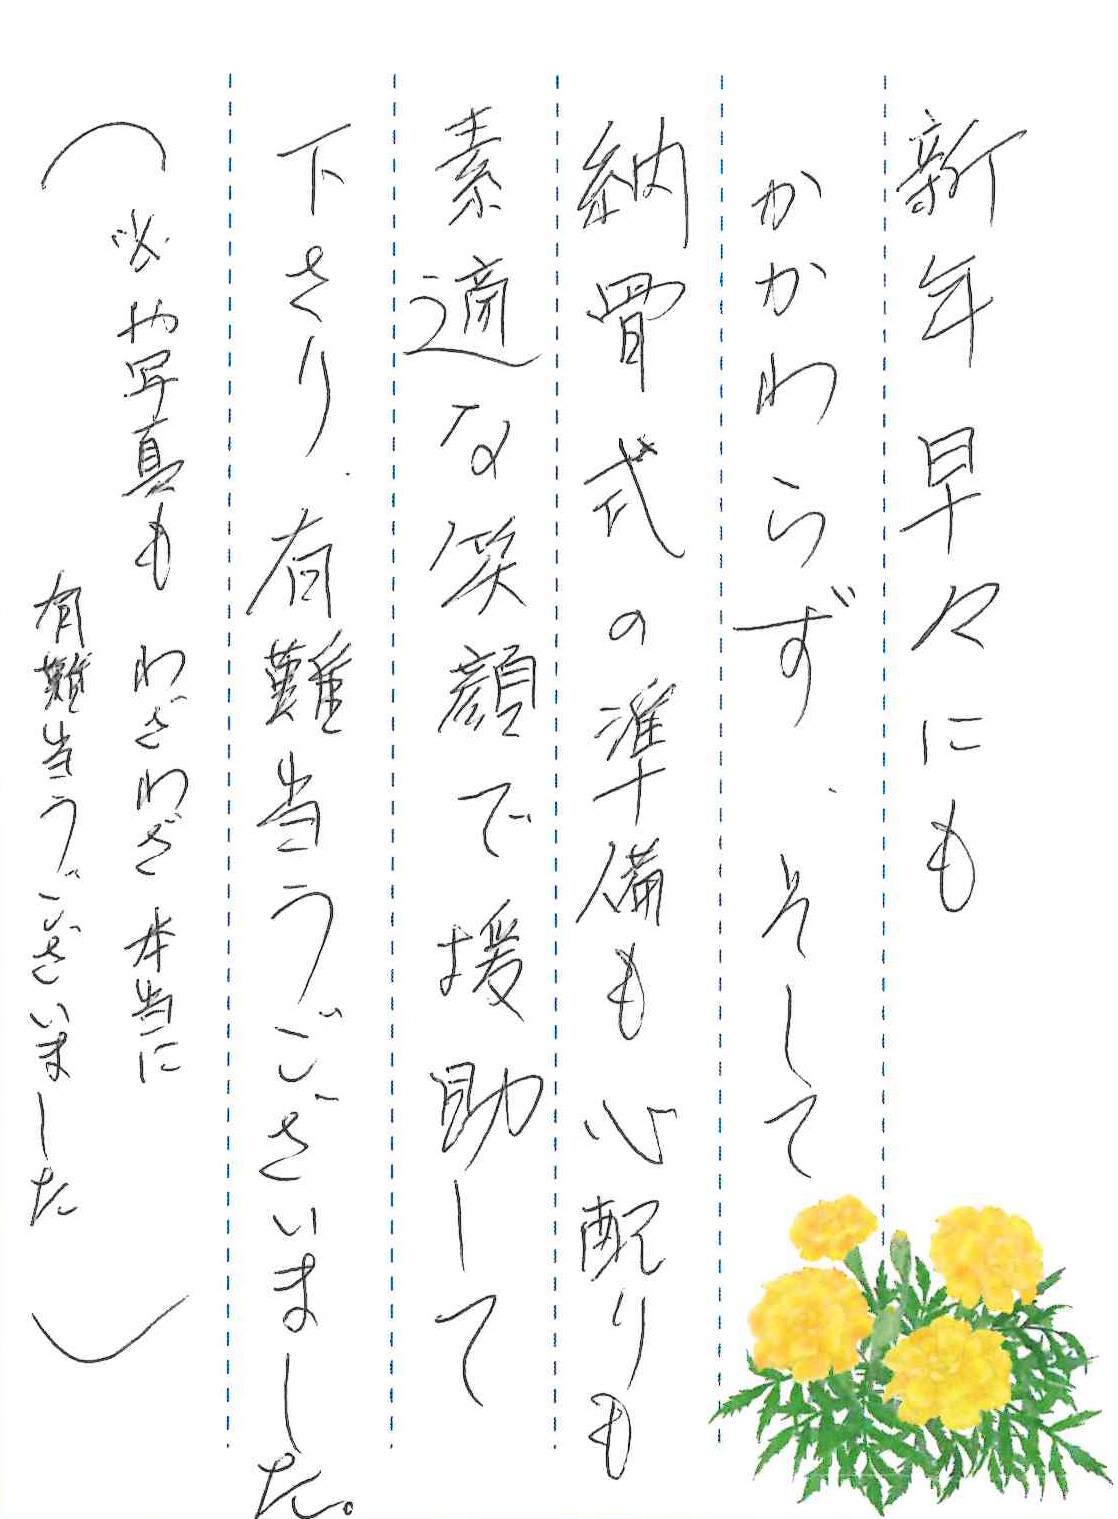 新年早々にも
かかわらず、そして
納骨式の準備も心配りも
素適な笑顔で援助して
下さり、有難当うございました。
（や写真も わざわざ本当に
有難当うございました）